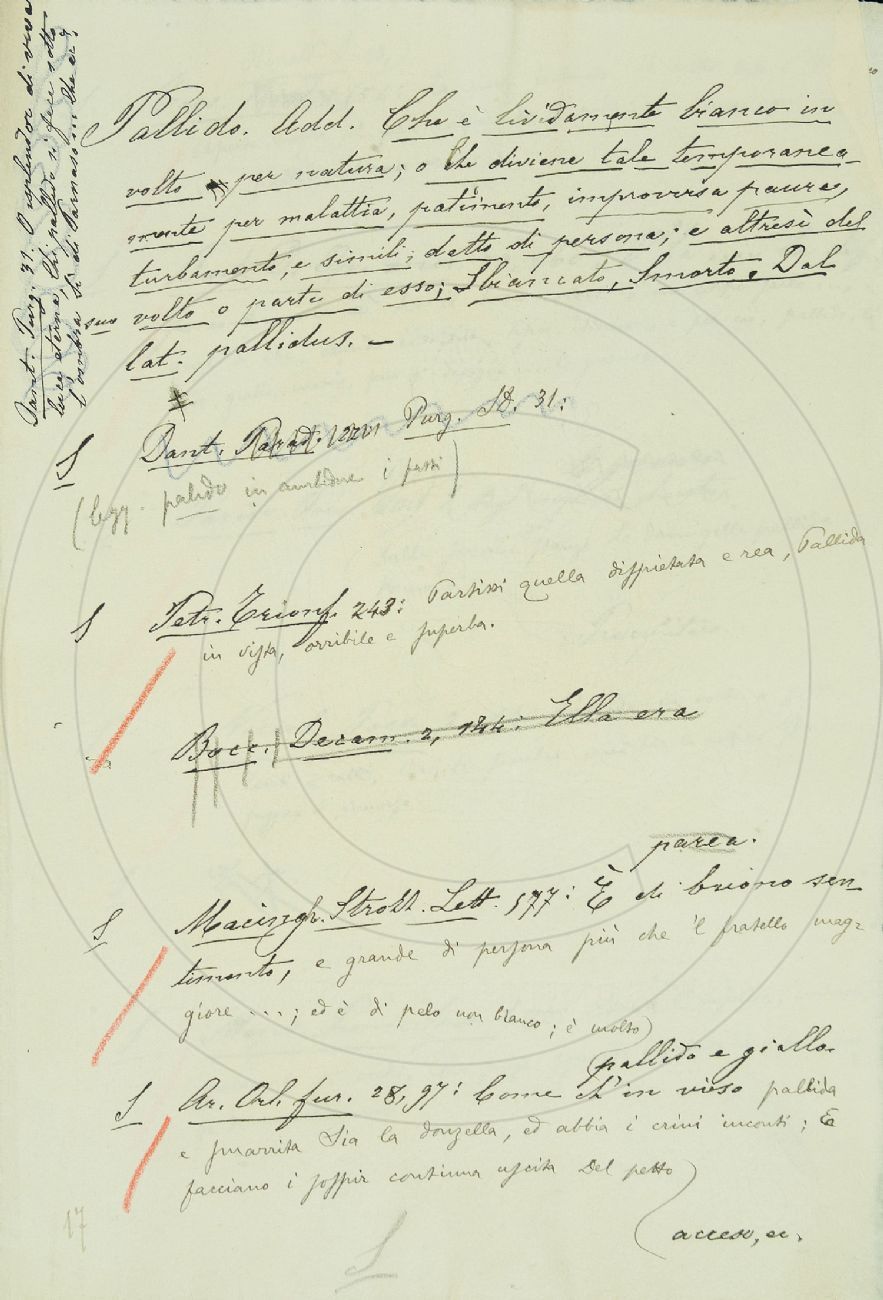 Dant. Purg. 31: O isplendor di viva
luce eterna, Chi pallido si fece sotto
l'ombra Sì di Parnaso in che ec:
Pallido. Add. Che è lividamente bianco in
volto per natura; o Che diviene tale temporanea-
mente per malattia, patimento, improvvisa paura,
turbamento, e simili; detto di persona; e altresì del
suo volto o parte di esso; Sbiancato, Smorto. Dal
lat. pallidus. –
#
S Dant. Parad. Purg. 31:
(legg. palido in ambidue i passi)
S Petr. Trionf. 243: Partissi quella dispietata e rea, Pallida
in vista, orribile e superba.
Bocc. Decam. 2, 144: Ella era
parea.
S Macingh. Strozz. Lett. 577: È di buono sen-
timento, e grande di persona più che 'l fratello mag-
giore ...; ed è di pelo non bianco; è molto)
(pallido e giallo.
S Ar. Orl. fur. 28, 97: Come ch'in viso pallida
e smarrita Sia la donzella, ed abbia i crini inconti; E
facciano i sospir continua uscita Del petto)
(acceso, ec.
17
S